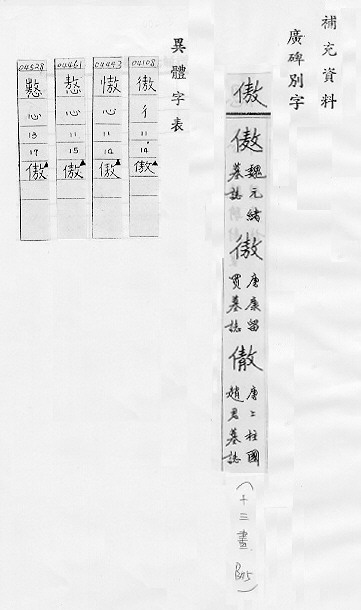 補充資料
廣碑別字
傲
傲 魏元緒墓誌
傲 唐康留買墓誌
傲 唐上柱國趙君墓誌
(十三畫
異體字表
04108 04443 04461 04528
㣸 慠 憗
彳 心 心 心
11 11 11 13
14 14 15 17
傲 傲 傲 傲